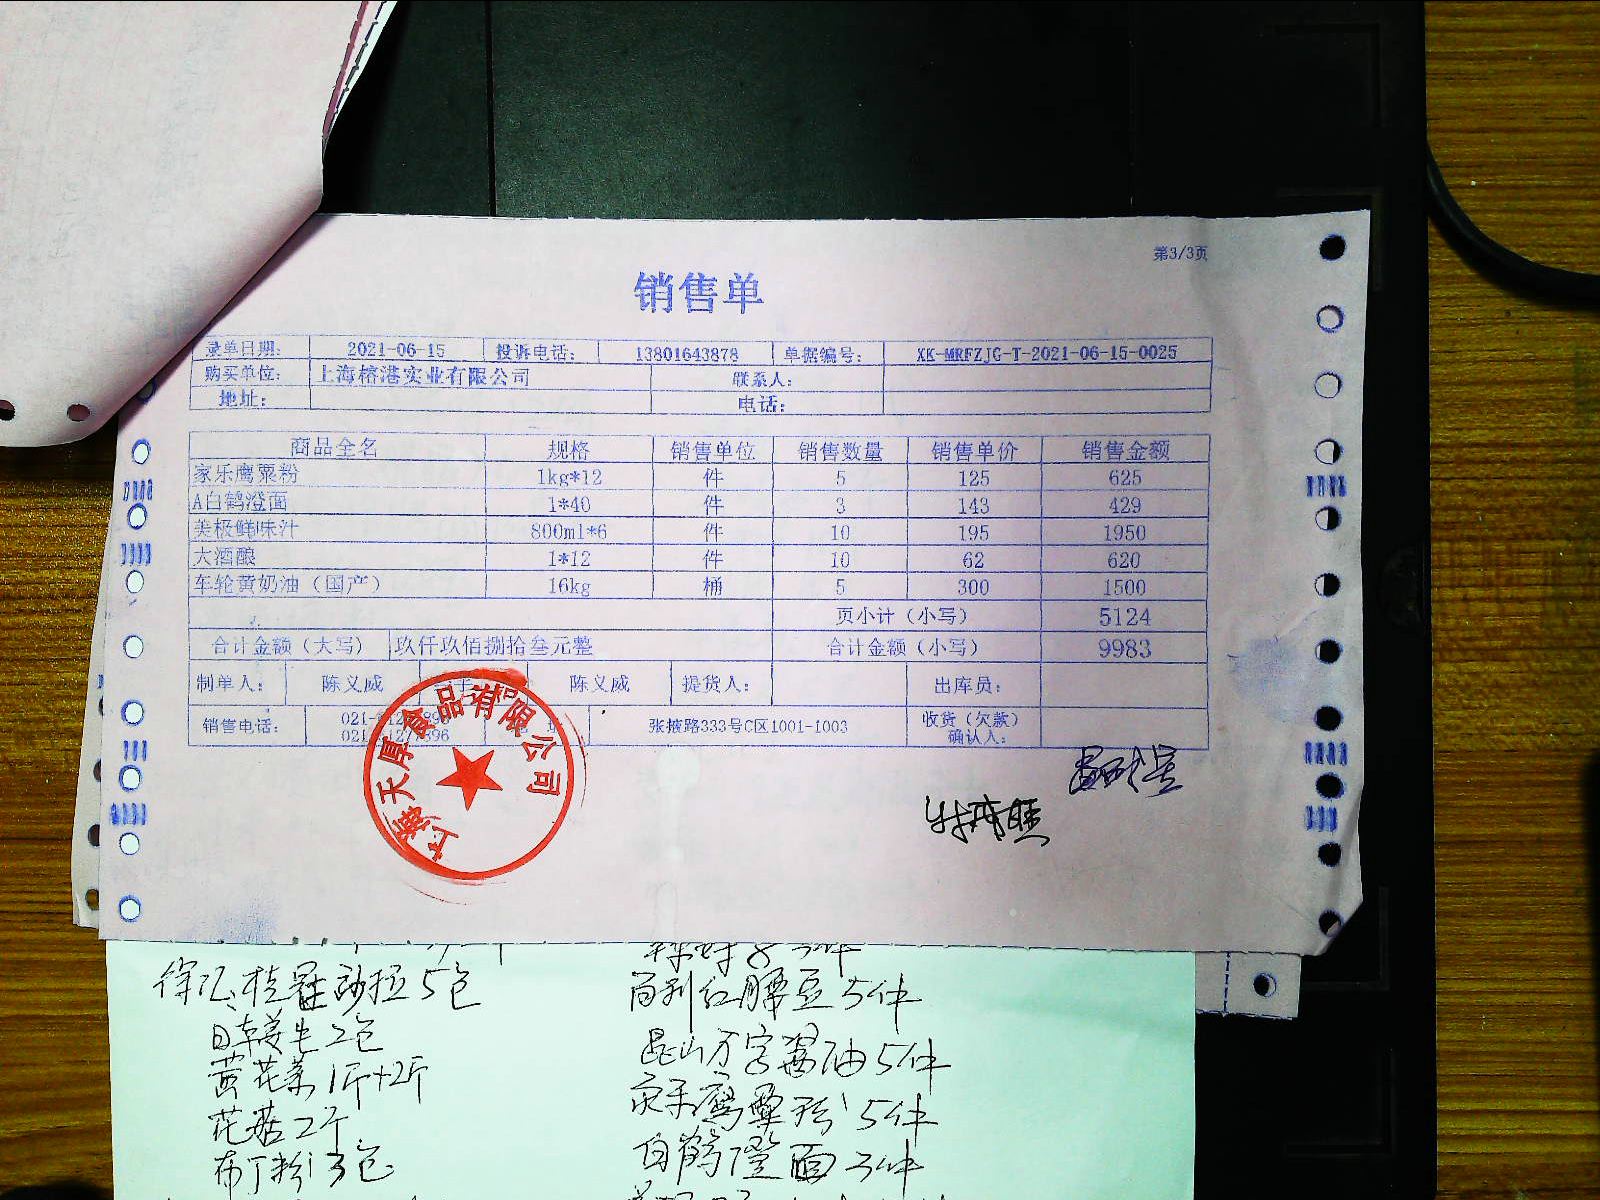 第3/3页
销售单
录单日期: 2021-06-15 投诉电话: 13801643878 单据编号: XK-MRFZJG-T-2021-06-15-0025
购买单位: 上海榕港实业有限公司 联系人:
地址: 电话:
商品全名 规格 销售单位 销售数量 销售单价 销售金额
家乐鹰粟粉 1kg*12 件 5 125 625
A白鹤澄面 1*40 件 3 143 429
美极鲜味汁 800ml*6 件 10 195 1950
大酒酿 1*12 件 10 62 620
车轮黄奶油（国产） 16kg 桶 5 300 1500
页小计（小写） 5124
合计金额（大写） 玖仟玖佰捌拾叁元整 合计金额（小写） 9983
制单人: 陈义威 陈义威 提货人: 出库员:
销售电话: 张掖路333号C区1001-1003 收货（欠款）
确认人:
上海天厚食品有限公司
5包
局利红腰豆5件
日韩姜生2包
昆山万字酱油5件
黄花菜1斤+2斤
家乐鹰粟粉5件
花菇2斤
白鹤澄面3件
布丁粉3包